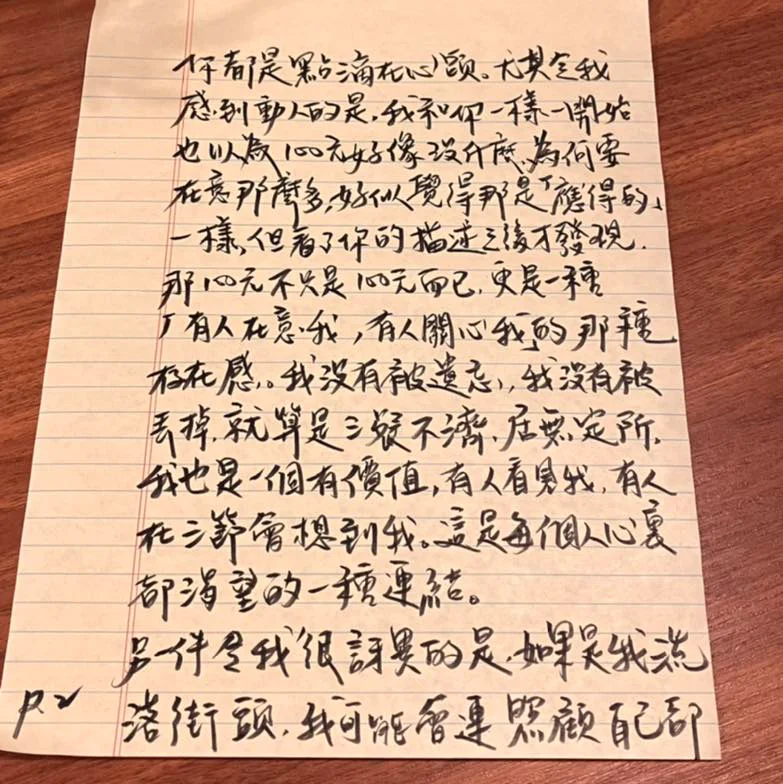 你都是點滴在心頭。尤其令我
感到動人的是,我和你一樣一開始
也以為100元好像沒什麼,為何要
在意那麼多,好似覺得那是「應得的」
一樣,但看了你的描述之後才發現,
那100元不只是100元而已,更是一種
「有人在意我,有人關心我」的那種
存在感。我沒有被遺忘,我沒有被
丟掉,就算是三餐不濟,居無定所,
我也是一個有價值,有人看見我,有人
在三節會想到我。這是每個人心裏
都渴望的一種連結。
另一件令我很訝異的是,如果是我流
落街頭,我可能會連照顧自己都
P.2